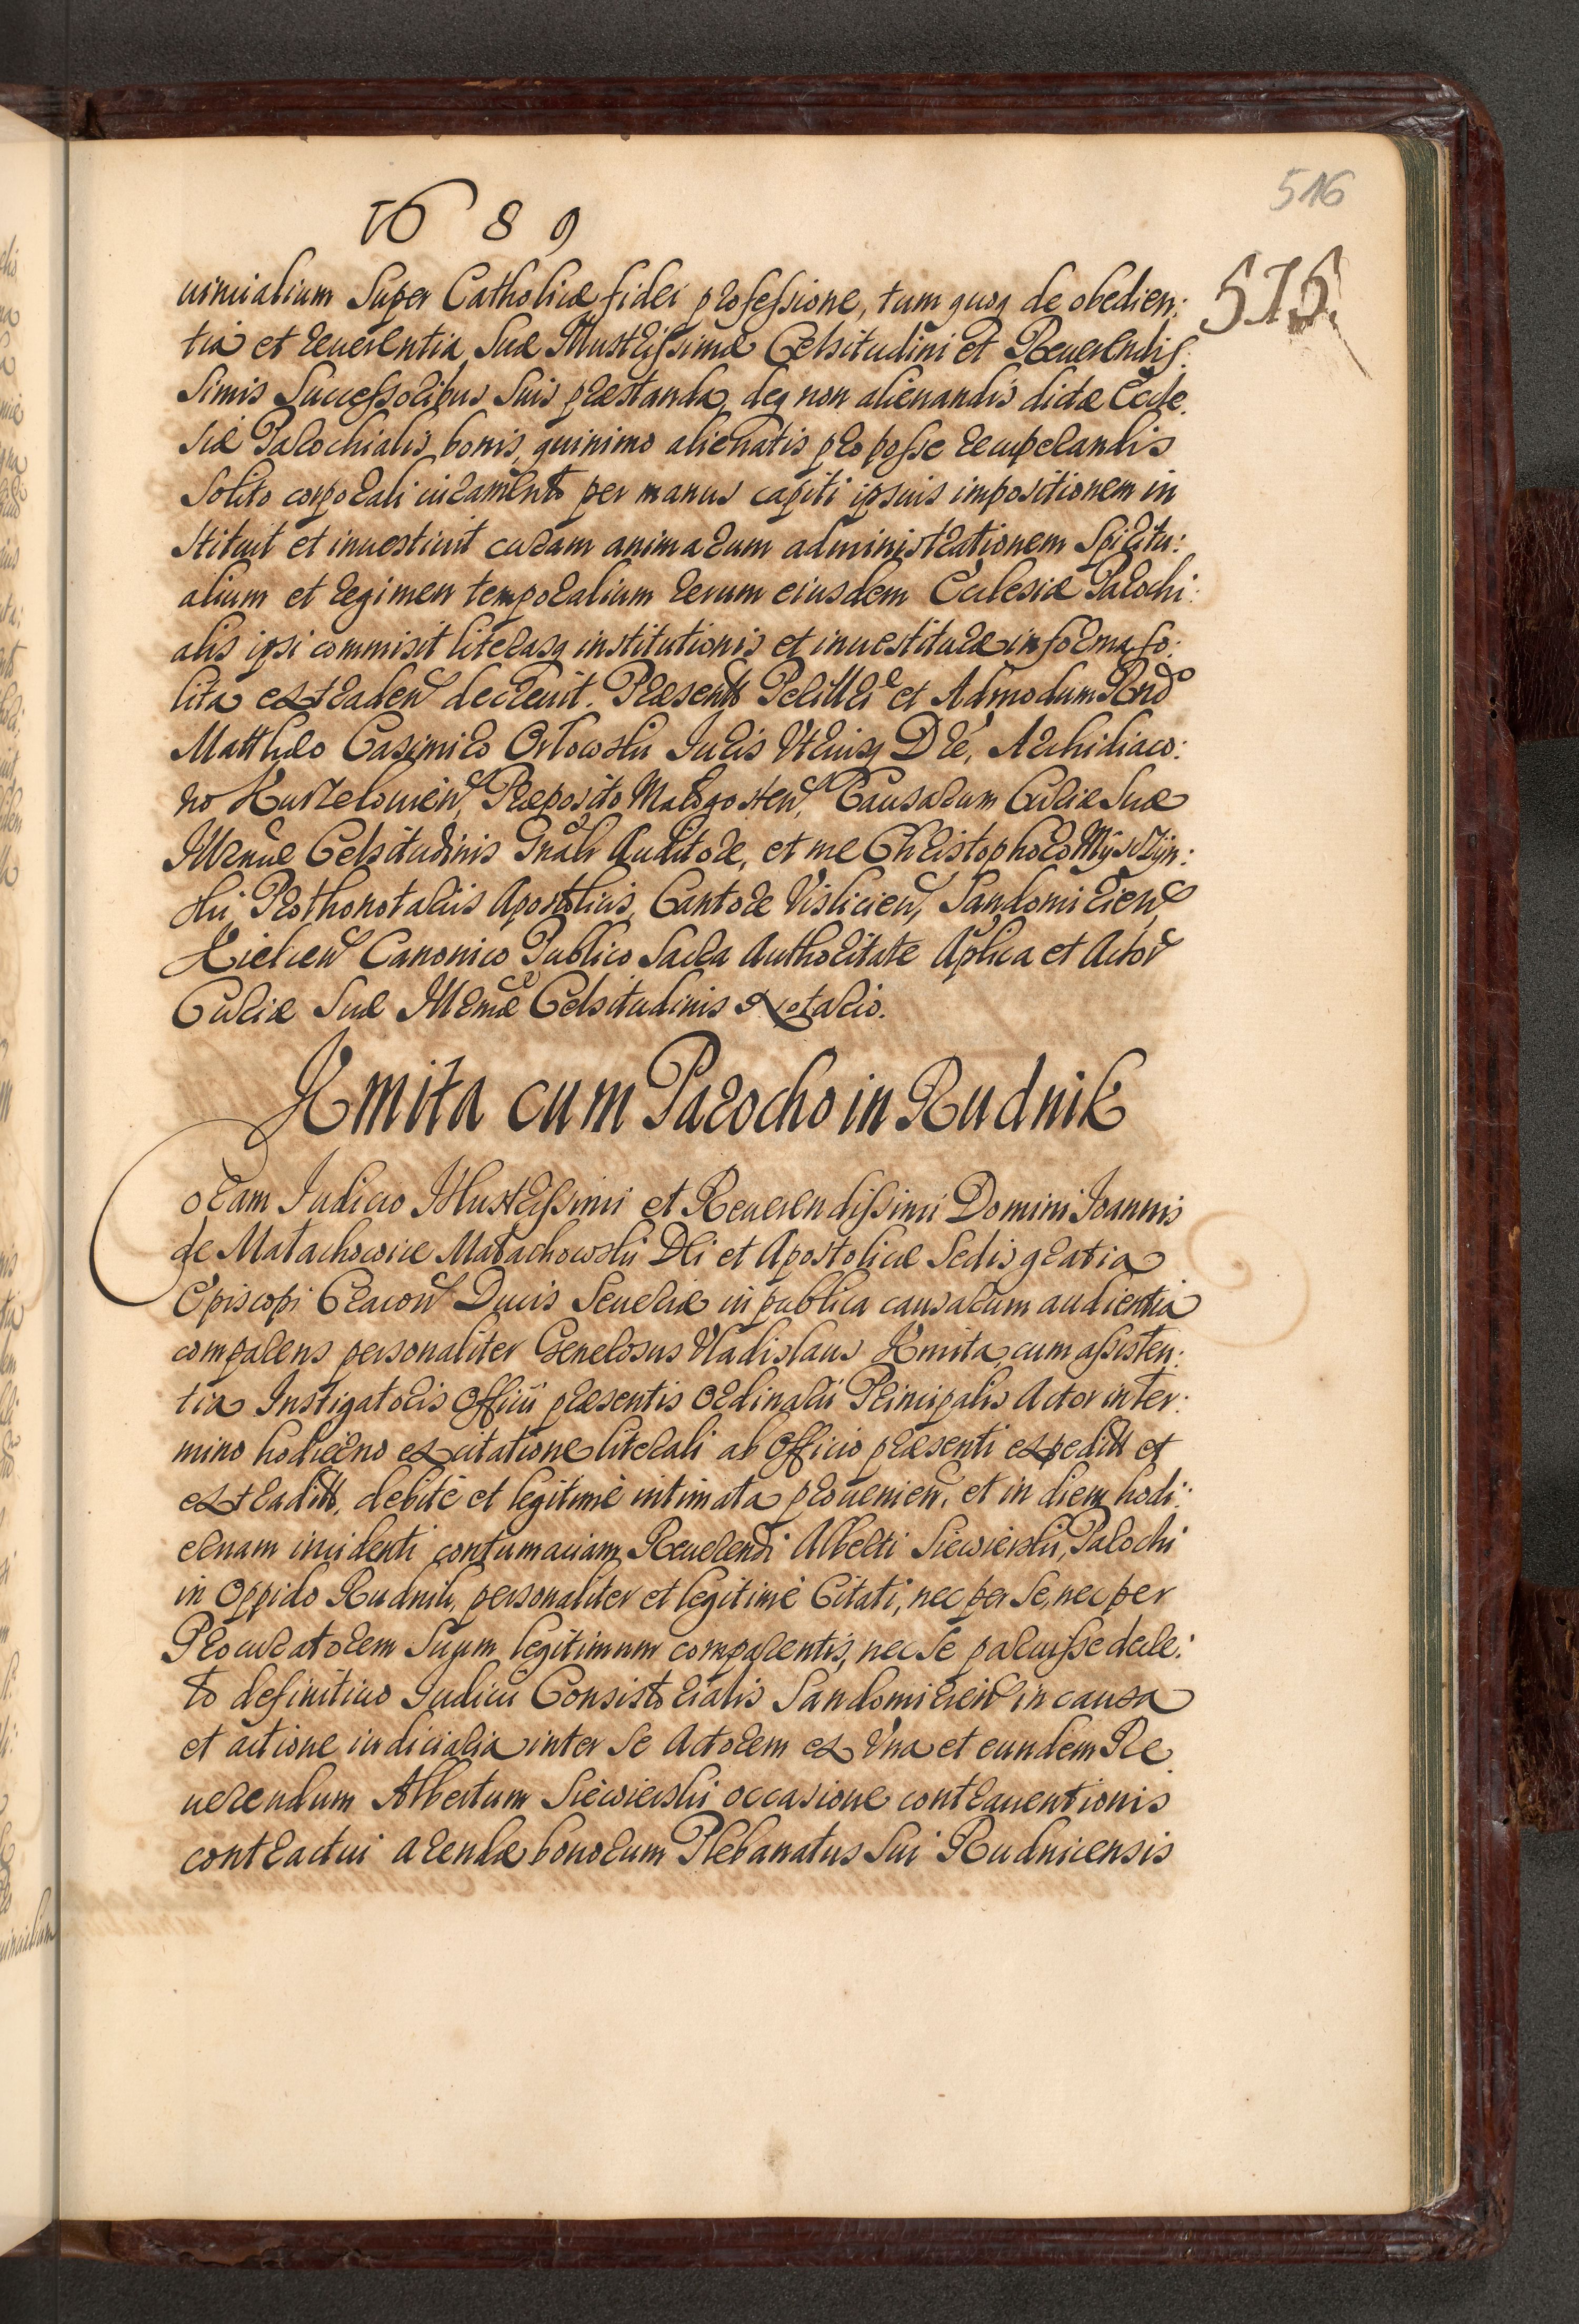 516
1689
515.
uincialium Super Catholicæ fidei professione, tum quoq de obedien:
tia et reuerentia Suæ Illustrissimæ Celsitudini et Reuerendis:
simis Successoribus Suis præstanda, deq non alienandis dictæ Eccle:
siæ Parochialis bonis, quinimo alienatis pro posse recuperandis
Solito corporali iuramento per manus capiti ipsius impositionem in
stituit et inuestiuit curam animarum administrationem Spiritu:
alium et regimen temporalium rerum eiusdem Ecclesiæ Parochi:
alis ipsi commisit literasq institutionis et inuestituræ in forma so:
lita extraden decreuit. Præsentt Perillri et Admodum Rndo
Matthæo Casimiro Orłowski Iuris Vtriusq Dre, Archidiaco:
no Kurzelouien, Præposito Małogosten, Causarum Curiæ Suæ
Illrmæ Celsitudinis Gnali Auditore, et me Christophoro Myszyn:
ski Prothonotariis Apostolicis, Cantore Vislicien, Sandomirien
Kielcen Canonico Publico Sacra Authoritate Aplica et Actor
Curiæ Suæ Illrmæ Celsitudinis Notario.
Kmita cum Parocho in Rudnik
Coram Iudicio Illustrissimi et Reuerendissimi Domini Ioannis
de Małachowice Małachowski Dei et Apostolicæ Sedis gratia
Episcopi Cracoun Ducis Seueriæ in publica causarum audientia
comparens personaliter Generosus Vladislaus Kmita, cum assisten:
tia Instigatoris Officii præsentis Ordinarii Principalis Actor in ter:
mino hodierno ex citatione literali ab Officio præsenti expeditt et
extraditt, debitè et legitimè intimata prouenien, et in diem hodi:
ernam incidenti contumaciam Reuerendi Alberti Siewierski, Parochi
in Oppido Rudnik, personaliter et legitimè Citati, nec per Se, nec per
Procuratorem Suum legitimum comparentis, nec Se paruisse decre:
to definitiuo Iudicii Consistorialis Sandomirien in causa
et actione iudicialia inter Se Actorem ex Vna et eundem Re
uerendum Albertum Siewierski occasione contrauentionis
contractui arendæ bonorum Plebanatus Sui Rudnicensis